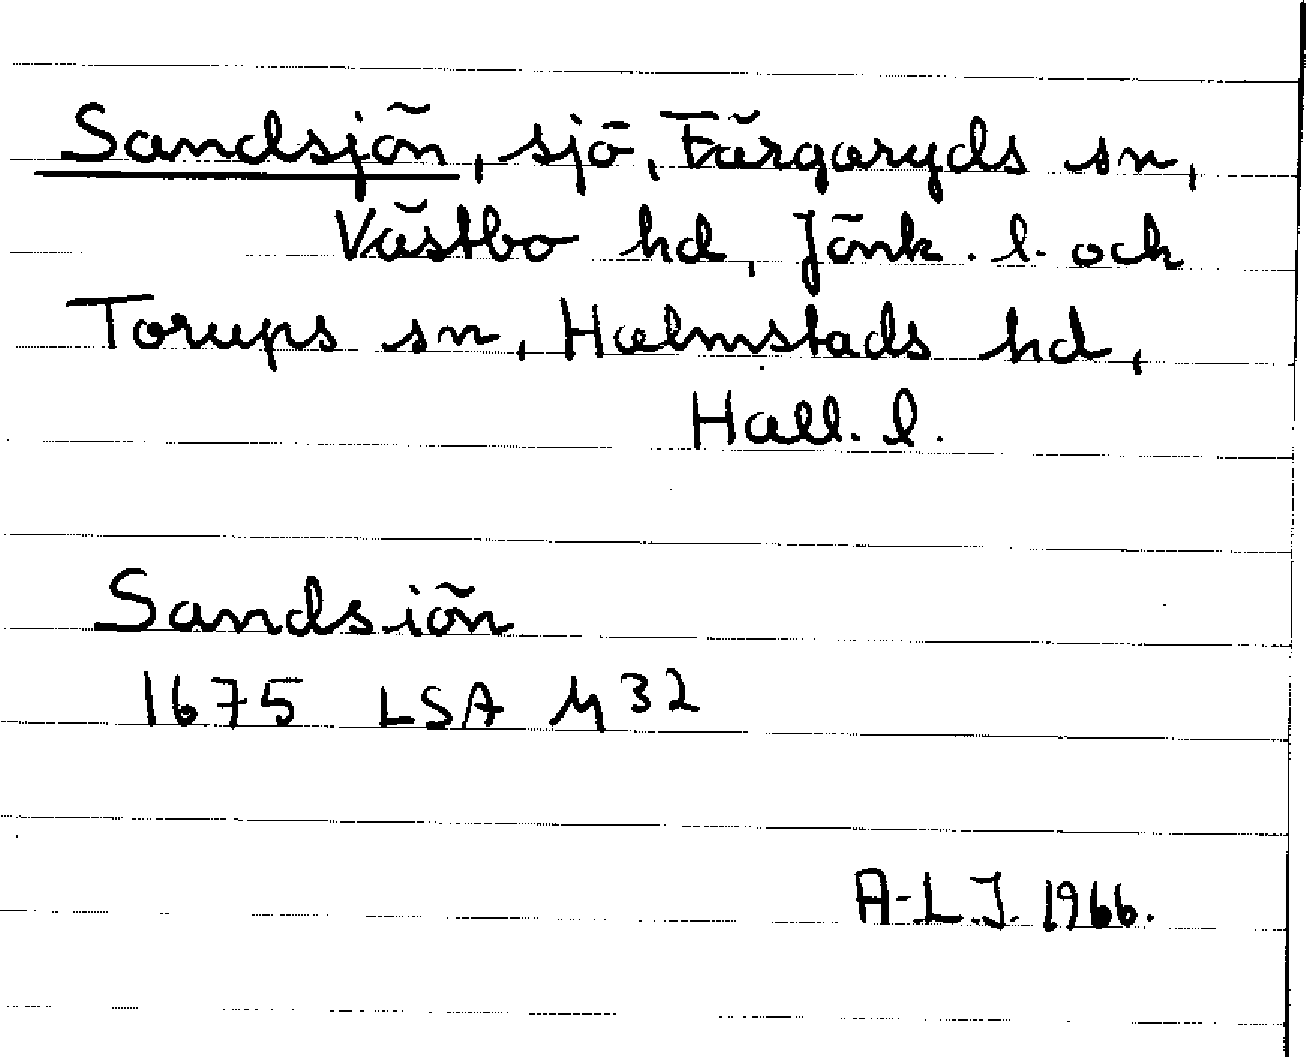 Sandsjön, sjö, Färgaryds sn,
Västbo hd, Jönk. l. och
Torups sn, Halmstads hd,
Hall. l.
Sandsiön
1675 LSA M 32
A-L.J. 1966.